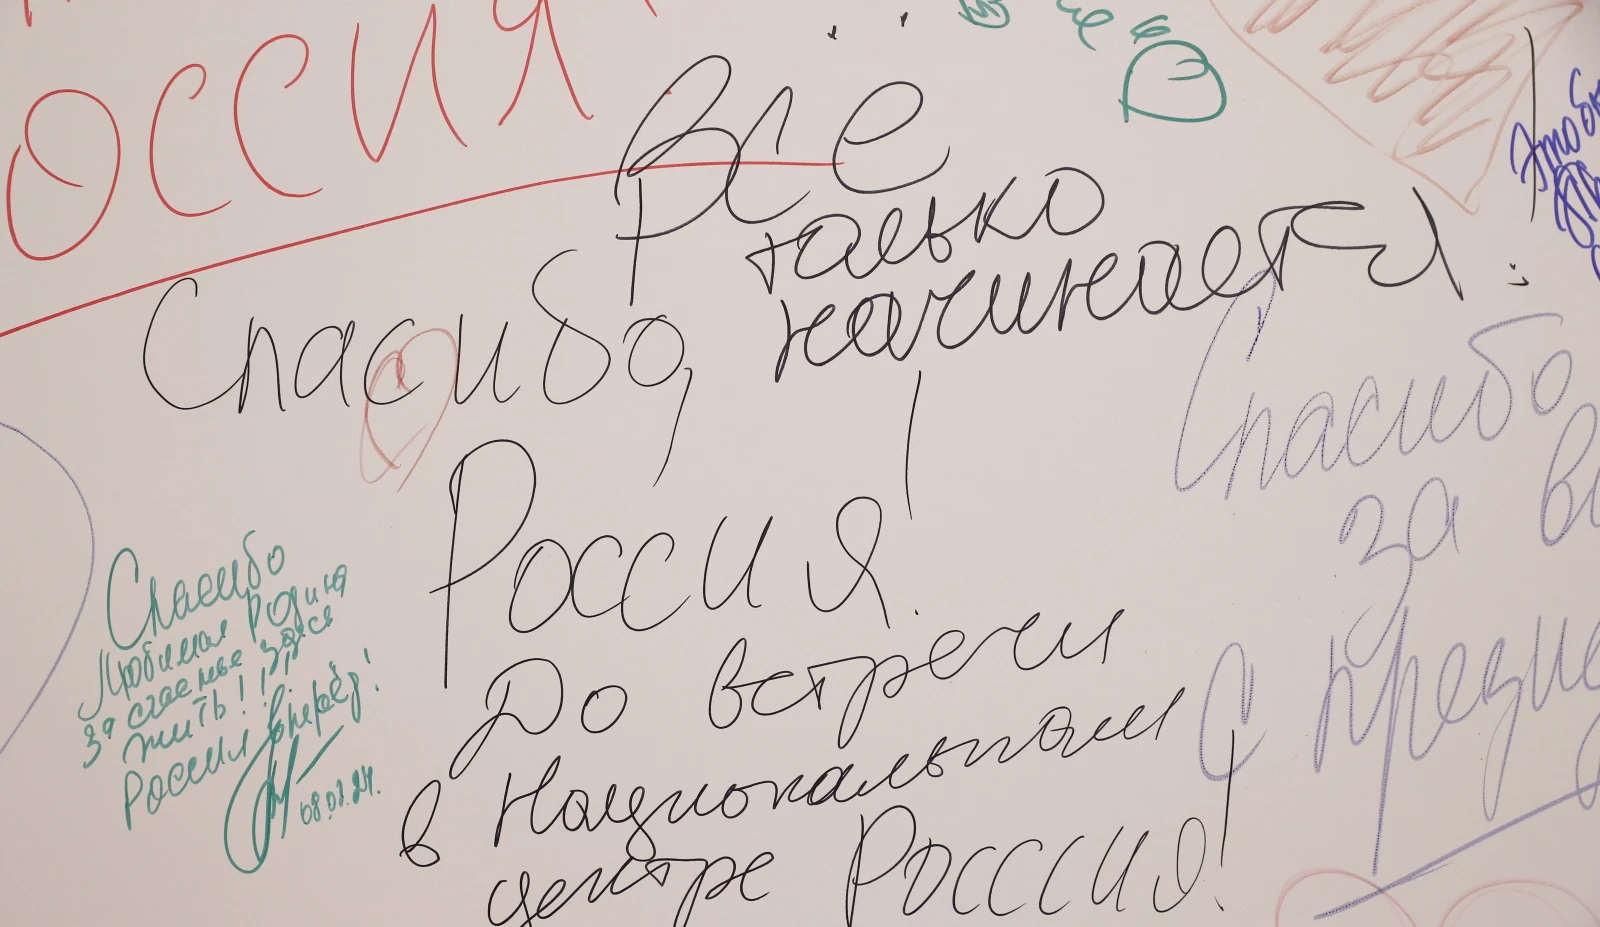 ОССИЯ
Всё
только
начинается!
Спасибо,
Россия!
До встречи
в Национальном
центре Россия!
Спасибо
Любимая Родина
за счастье здеся
жить!!!
Россия вперёд!
08.07.24.
Спасибо
за
С
Это